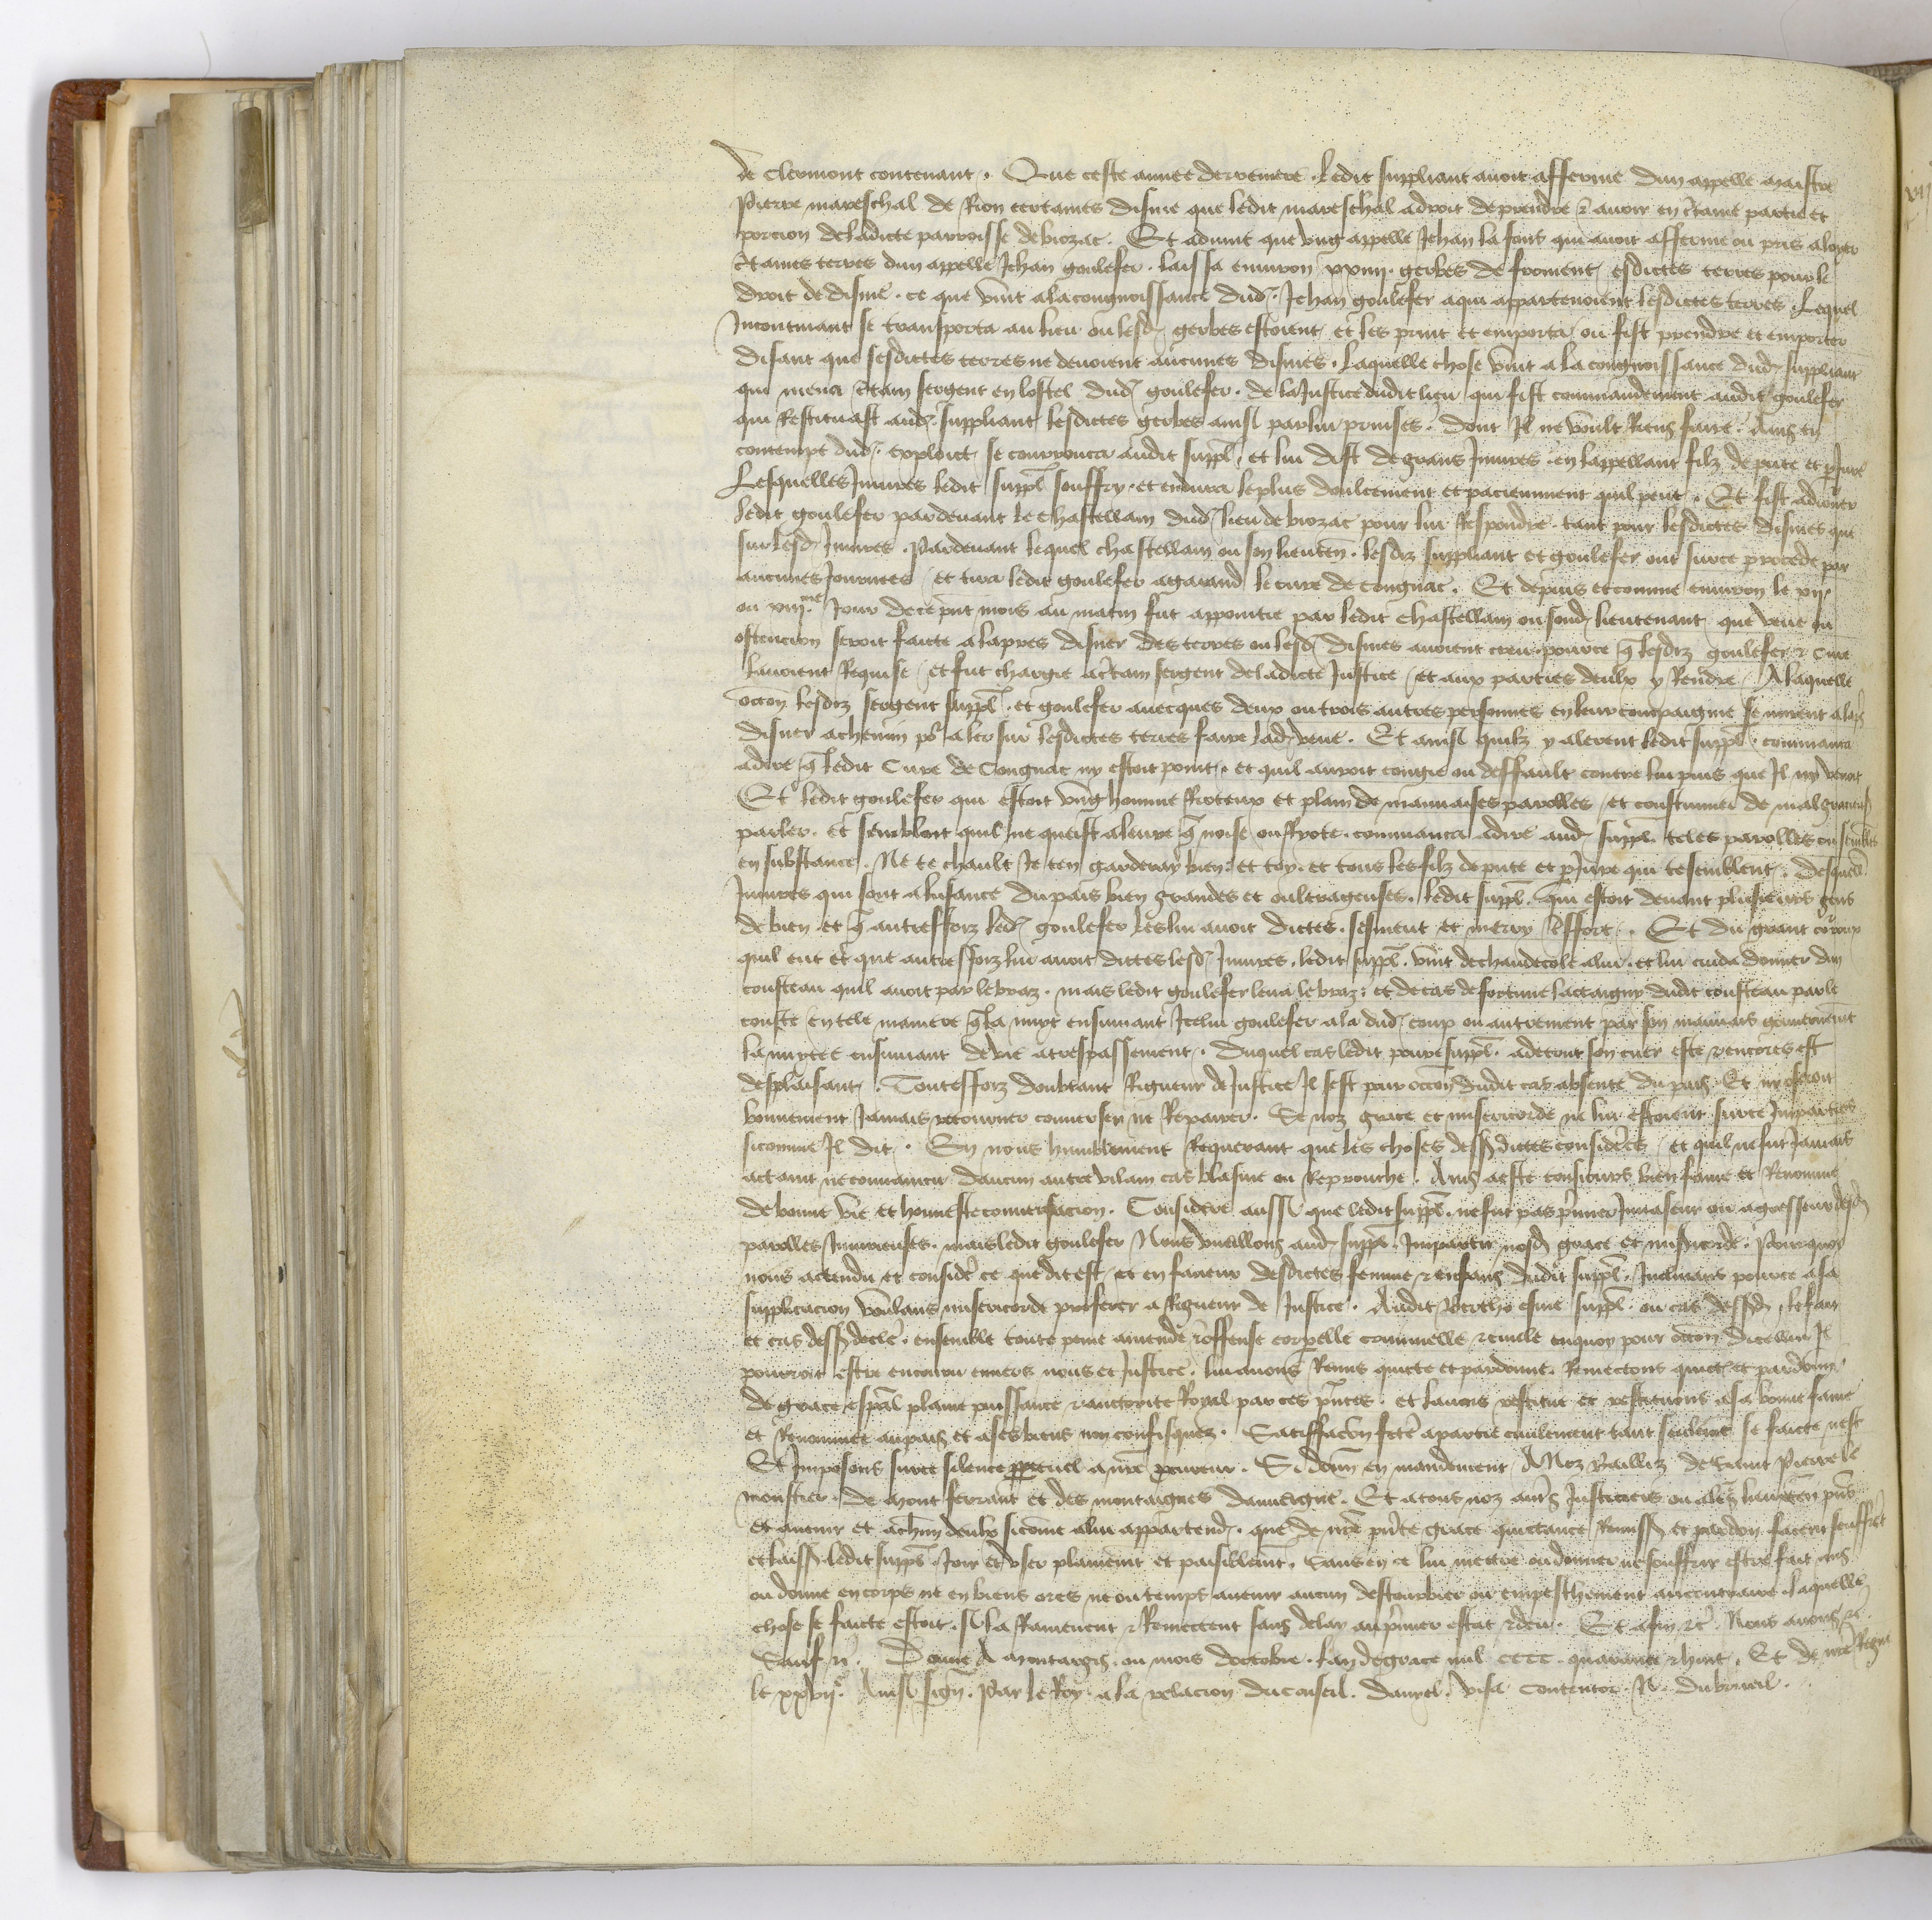 de Clermont contenant. Que ceste annee derreniere ledit suppliant avoit afferme dun appelle maistre
Pierre mareschal de Rion certaines disme que ledit mareschal a droit de prendre & avoir en ctaine partie et
porcion de ladicte parroisse de biozac. Et advint que ung appelle Jehan la font qui avoit afferme ou pris a loyer
ctaines terres dun appelle Jehan goulefer laissa environ xxiiii gerbes de froment esdictes terres pour le
droit de disme. ce que vint a la congnoissance dud. Jehan goulefer a qui appartenoient lesdictes terres. Lequel
Incontinant se transporta au lieu ou lesd. gerbes estoient et les print et emporta ou fist prendre et emporter
disant que sesdictes terres ne devoient aucunes dismes. Laquelle chose vint a la congnoissance dud. suppliant
qui mena ctain sergent en lostel dud. goulefer. de la Justice dudit lieu qui fist commandement audit goulefer
qui Restituast aud. suppliant lesdictes gerbes ainsi par lui prinses. dont Il ne voult Riens faire. Ains en
contempt dud. exploict se courrouca audit suppl. et lui dist de grans Injures en lappellant filz de pute et pjure
Lesquelles Injures ledit suppl souffry et endura le plus doulcement et paciemment quil peut. Et fist adjorner
ledit goulefer pardevant le chastellain dud. lieu de biozac pour lui Respondre tant pour lesdictes dismes que
sur lesd. Injures. Pardevant lequel chastellain ou son lieuten. lesdiz suppliant et goulefer ont surce procede par
aucunes Journees et tira ledit goulefer a garand le cure de Congnac. Et depuis et comme environ le xii.
ou xiii.me Jour de ce pnt mois au matin fut appoincte par ledit chastellain ou sond. lieutenant que veue ou
ostencion seroit faicte a lapres disner des terres ou lesd. dismes avoient creu. pource q lesdiz goulefer & Cure
lavoient Requise et fut chargie a ctain sergent de ladicte Justice et aux parties deulx y Rendre. A laquelle
occon lesdiz sergent suppl. et goulefer avecques deux ou trois autres personnes en leur compaignie se mirent a lapres
disner a chemin po aler sur lesdictes terres faire lad. veue. Et ainsi quilz y alerent ledit suppl. commanca
a dire q ledit Cure de Congnac ny estoit point. et quil auroit congie ou deffault contre lui puis que Il ny venoit
Et ledit goulefer qui estoit ung homme Rioteux et plain de mauvaises parolles et coustumier de mal gracieus
parler. et sembloit quil ne queist a leure q noise ou Ryote. commanca a dire aud. suppl. teles parolles ou semblables
en substance. Ne te chault Je ten garderay bien et toy et tous les filz de pute et pjure qui te semblent. Desquell
Injures qui sont a lusance du pais bien grandes et oultrageuses. ledit suppl. qui estoit devant plusieurs gens
de bien et q autresfoiz led. goulefer les lui avoit dictes. sesmeut et merry tresfort. Et du grant corroux
quil eut et que autresfoiz lui avoit dictes lesd. Injures. ledit suppl. vint de chaudecole a lui. et lui cuida donner dun
cousteau quil avoit par le braz. mais ledit goulefer leva le braz et de cas de fortune lactaigny dudit cousteau par le
couste en tele maniere q la nuyt ensuivant Icelui goulefer ala dud. coup ou autrement par son mauvais gouvernemt
la nuytee ensuivant de vie a trespassement. Duquel cas ledit povre suppl. a de tout son cuer este & encores est
desplaisant. Toutesfoiz doubtant Rigueur de Justice Il sest par occon dudit cas absente du pais. Et ny oseroit
bonnement Jamais retourner converser ne Reparer. Se noz grace et misericorde ne lui estoient surce Imparties
sicomme Il dit. En nous humblement Requerant que les choses dessusdictes considerees et quil ne fut Jamais
actaint ne convaincu daucun autre vilain cas blasme ou Reprouche. Ains a este tousiours bien fame et Renomme
de bonne vie et honneste conversacion. Considere aussi que ledit suppl. ne fut pas pmier Invaseur ou agresseur desd.
parolles Injurieuses. mais ledit goulefer Nous vueillons aud. suppl. Impartir nosd. grace et misicorde. Pourquoy
nous actendu et considere ce que dit est et en faveur desdictes femme & enfans dudit suppl. Inclinans pource a sa
supplicacion voulans misericorde preferer a Rigueur de Justice. Audit Bertho esme suppl. ou cas dessusd. le fait
et cas dessus declere. ensemble toute peine amende & offense corporelle criminelle & civile enquoy pour occon dicellui Il
pourroit estre encouru envers nous et Justice. lui avons Remis quicte et pardonne. Remectons quict. et pardonn.
de grace espal plaine puissance & auctorite Royal par ces pntes. et lavons restitue et restituons a sa bonne fame
et Renommee au pais et a ses biens non confisquez. Satisfacion fcte a partie civilement tant seulemt se faicte nest
Et Imposons surce silence perpetuel a nre procureur. Si donn en mandement A Noz Bailliz de Saint Pierre le
moustier. de Mont ferrant et des montaignes dauvergne. Et a tous noz autres Justiciers ou a leurs lieuxten pns
et avenir et a chun deulx sicome a lui appartendr. que de nre pnte grace quictance Remission et pardon. facent seuffrent
et laiss. ledit suppl. Joir et user plainemt et paisiblemt. Sans en ce lui mectre ou donner ne souffrir estre fait mis
ou donne en corps ne en biens ores ne ou temps avenir aucun destourbier ou empeschement au contraire. Laquelle
chose se faicte estoit. si la Ramenent & Remectent sans delay au pmier estat & deu. Et afin &c. Nous avons &c.
Sauf &c. Donne A Montargis ou mois doctobre. Lan de grace mil cccc. quarante & huit. Et de nre Regne
le xxvii.e Ainsi sign. Par le Roy. a la relacion du conseil. Daniel. visa Contentor. N. du brueil.